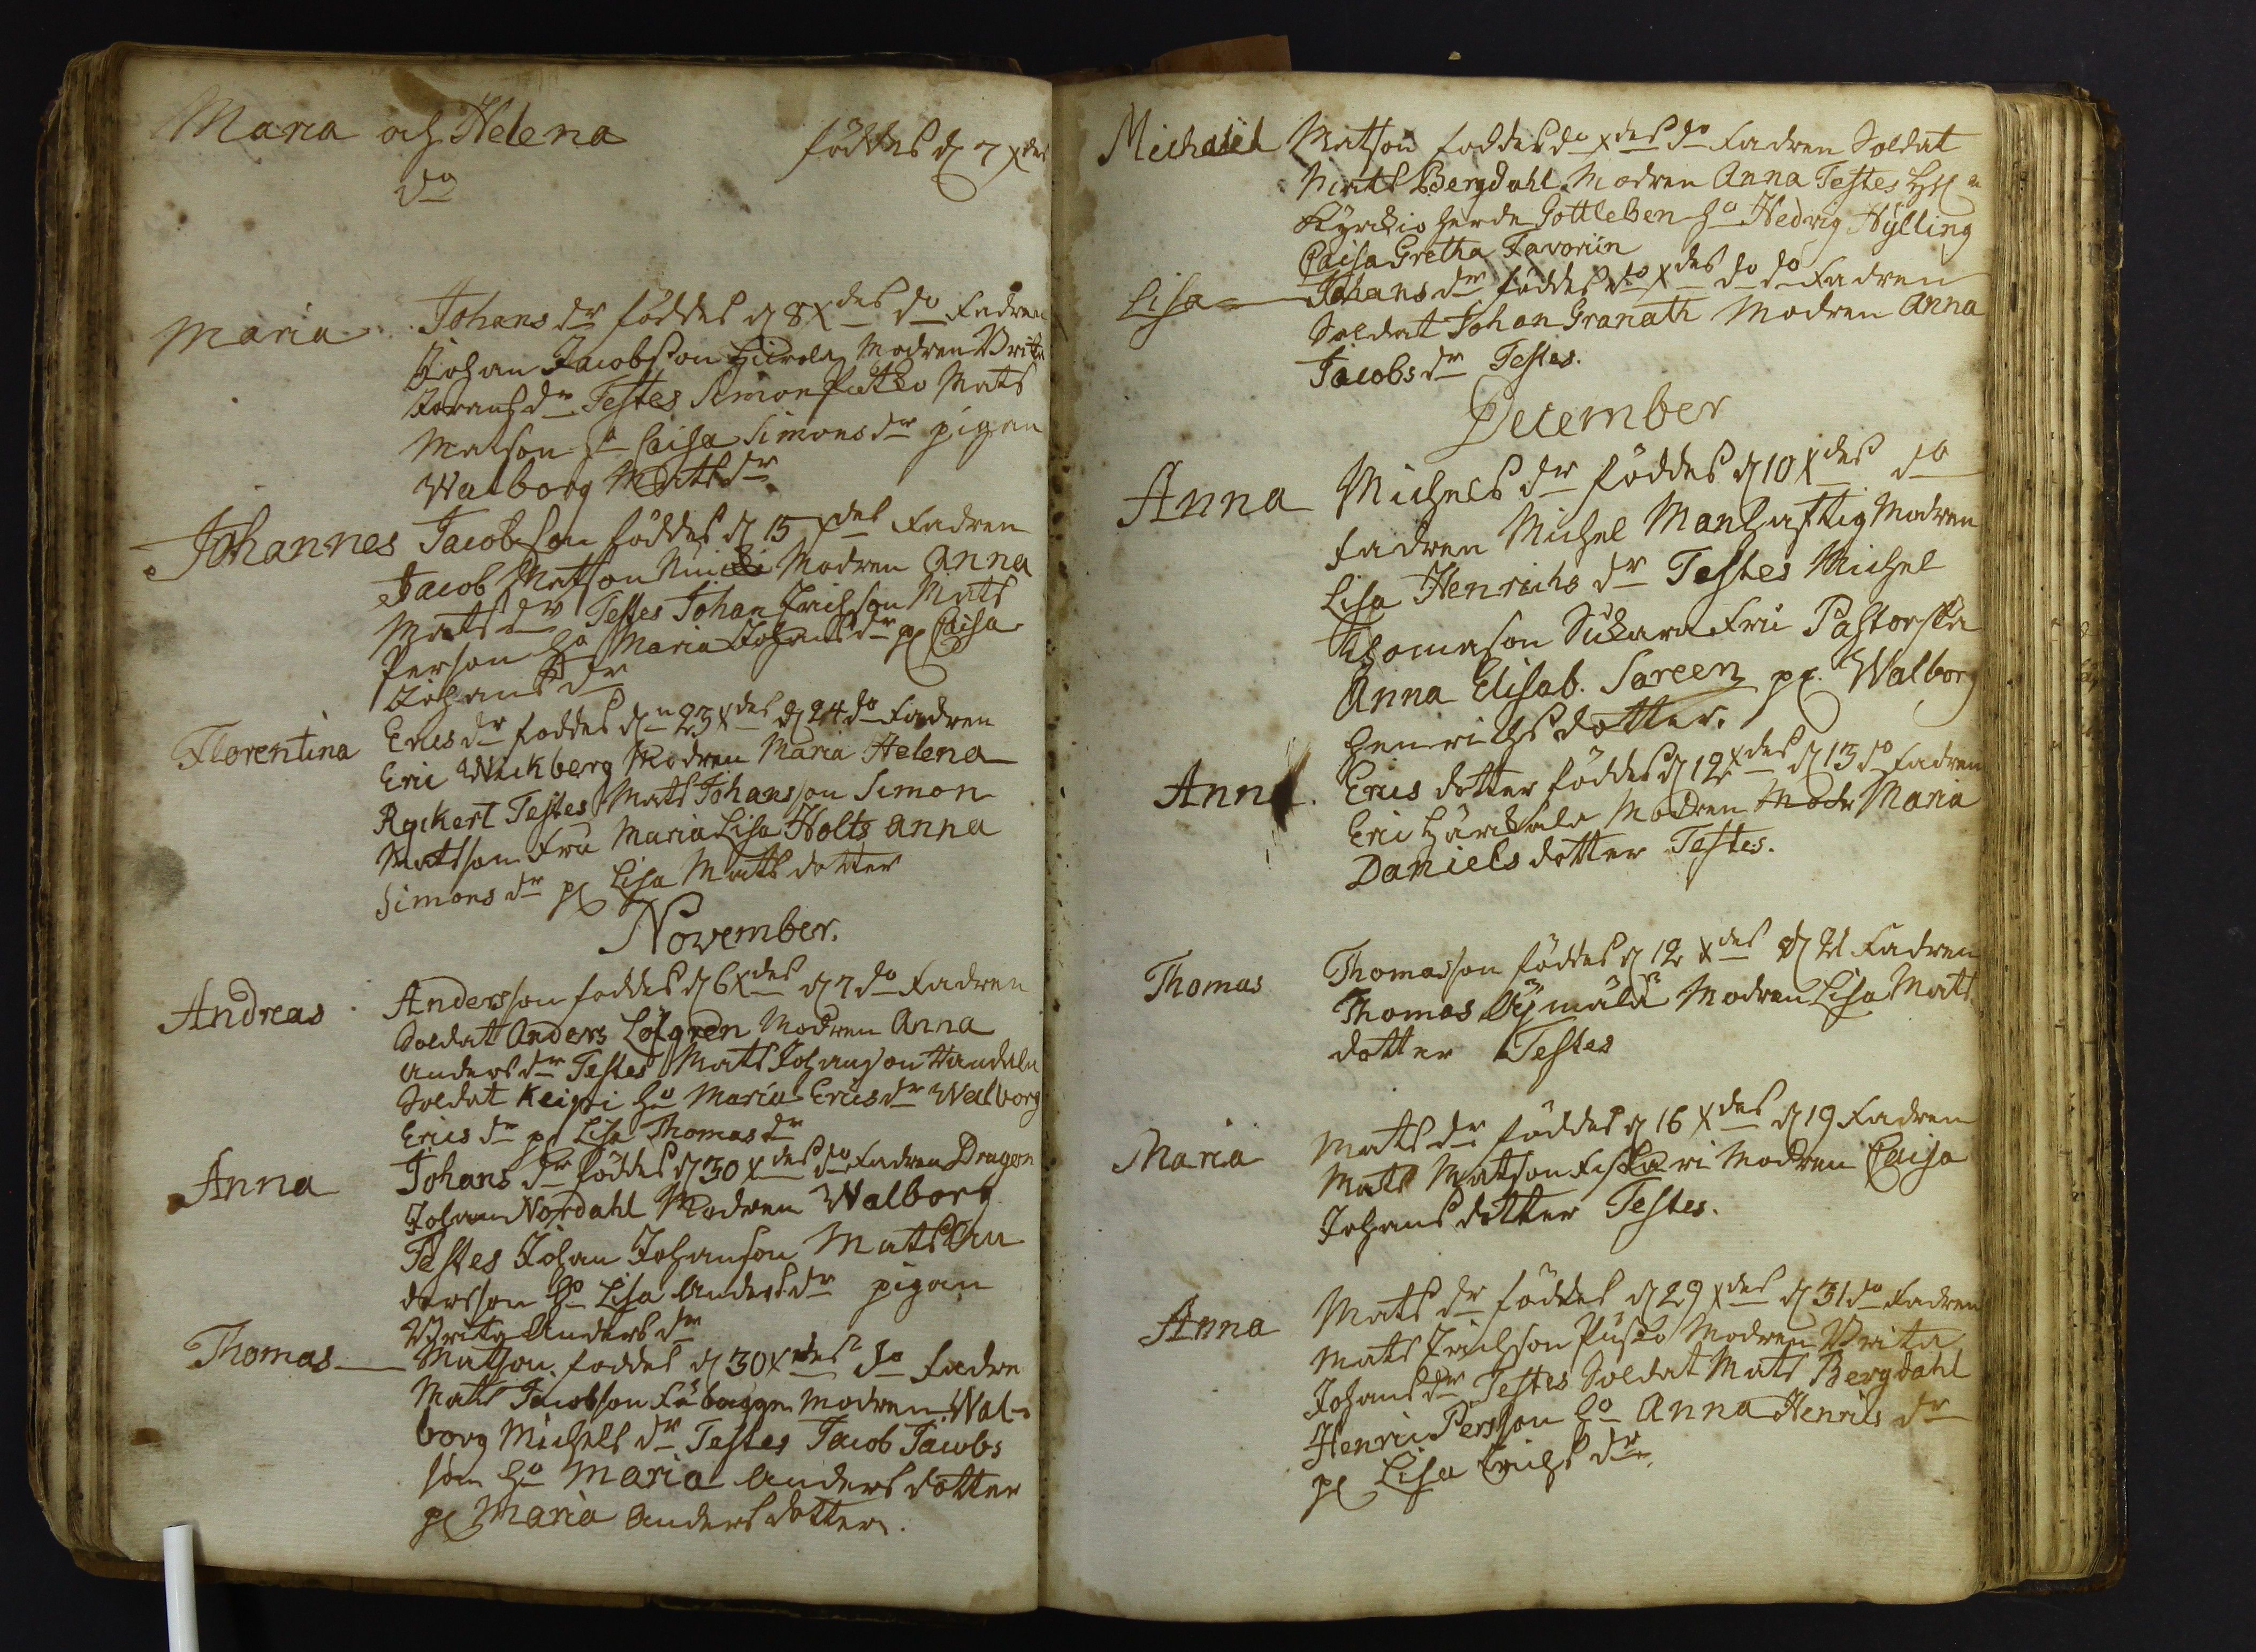 Maria och Helena föddes d 7 xdes
do
Maria Johans dr föddes d 8 Xdes do Fadren
Johan Jacobsson Modren Brita
dr Testes Simon Mats
Matson ho Caisa Simons dr pigan
Walborg Mats dr
Johannes Jacobsson föddes d 15 Xdes Fadren
Jacob Matson Modren Anna
Mats dr Testes Johan Erichson Mats
Person ho Maria Johans dr pg Caisa
Johans dr
Florentina Erics dr foddes dn 23 Xdes d 24 do Fadren
Eric Wickberg Modren Maria Helena
Ryckert Testes Mats Johansson Simon
Matsson Fru Maria Lisa Holts Anna
Simons dr pg Lisa Mats dotter
November.
Andreas Andersson foddes d 6 Xdes d 7 do Fadren
Soldat Anders Löfgren Modren Anna
Anders dr Testes Mats Johanson
Soldat Keipi ho Maria Erics dr Walborg
Erics dr pg Lisa Thomas dr
Anna Johans dr föddes d 30 Xdes do Fadren Dragon
Johan Nordahl Modren Walborg
Testes Johan Johanson Mats An
dersson ho Lisa Anders dr pigan
Brita Anders dr
Thomas Matson foddes d 30 Xdes do Fadre
Mats Jacobson Fäbagge Modren Wal-
borg Michels dr Testes Jacob Jacobs
son ho Maria Anders dotter
pg Maria Anders dotter.
Michael Matson foddes do xdes do Fadren Soldat
Mats Bergdahl Modren Anna Testes
Kyrkio herde Gottleben ho Hedvig Hylling
Caisa Gretha Favorin
Lisa Johans dr föddes do Xdes do do Fadren
Soldat Johan Granath Modren Anna
Jacobs dr Testes.
December
Anna Michels dr föddes d 10 Xdes do
Fadren Michel Manhafttig Modren
Lisa Henrichs dr Testes Michel
Thomason Sukara Fru Pastorska
Anna Elisab. Sareen pg. Walborg
Henrichsdotter.
Anna. Erics dotter föddes d 12 Xdes d 13 do Fadren
Eric Härkälä Modren Modr Maria
Daniels dotter Testes.
Thomas Thomasson föddes d 12 Xdes d 21 Fadren
Thomas Modren Lisa Mats
dotter Testes
Maria Mats dr föddes d 16 Xdes d 19 Fadren
Mats Matson Fiskari Modren Caisa
Johans dotter Testes.
Anna Mats dr föddes d 29 Xdes d 31 do Fadren
Mats Erichson Pusko Modren Brita
Johans dr Testes Soldat Mats Bergdahl
Henric Persson ho Anna Henrics dr
pg Lisa Erichs dr.